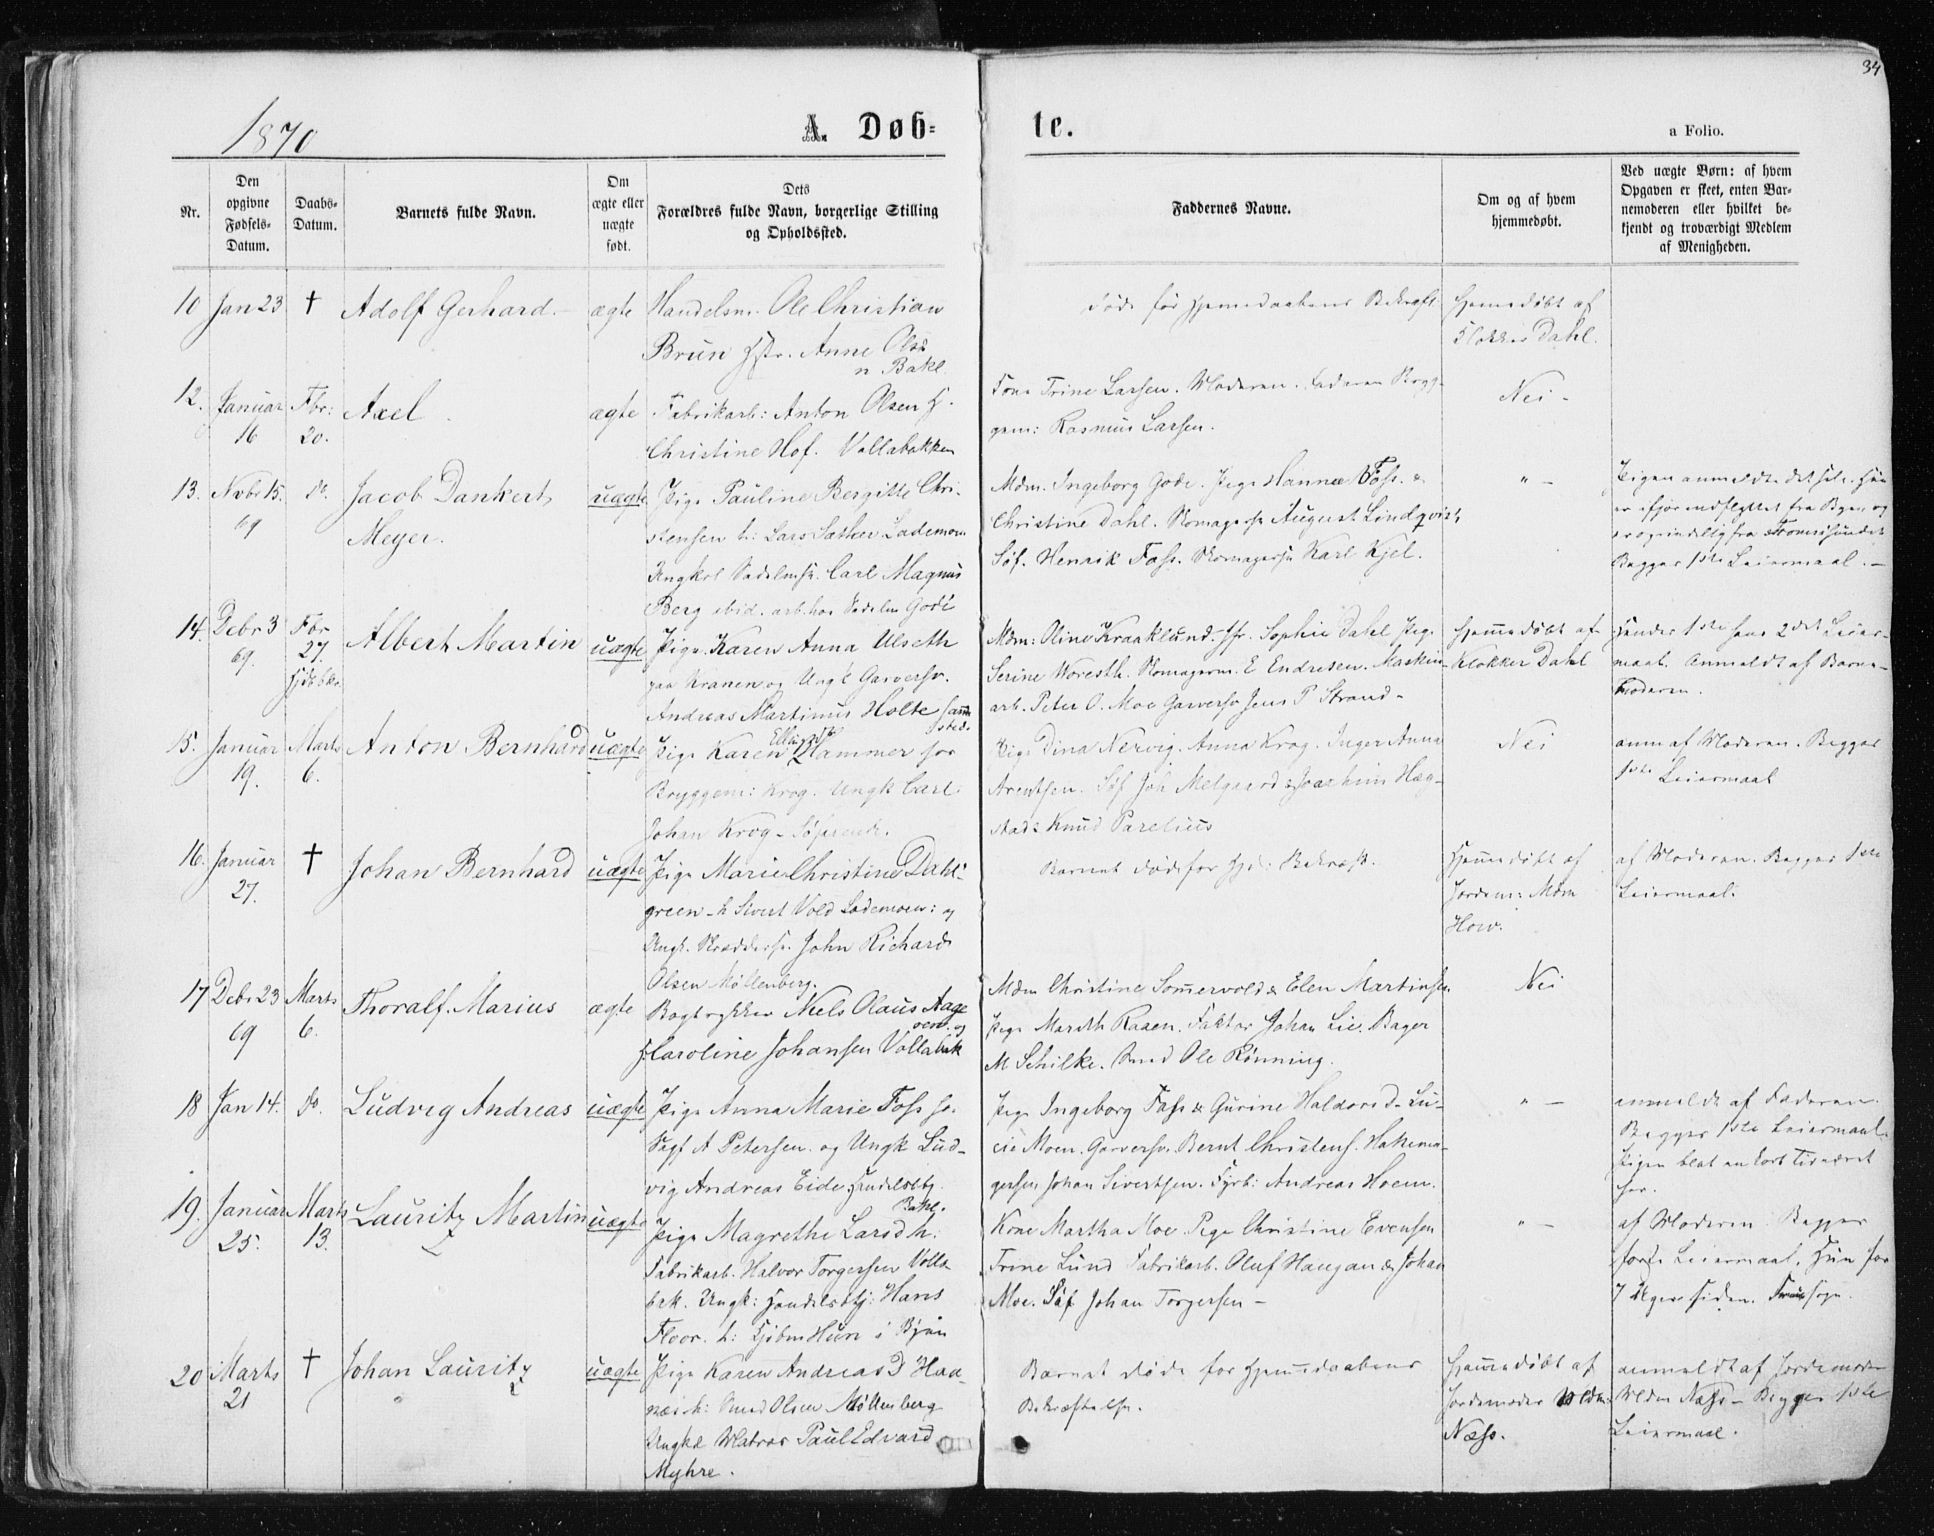 34
1870
A. Døb-
te.
a Folio.
Nr.
Den opgivne Fødsels-Datum.
Daabs-Datum.
Barnets fulde Navn.
Om ægte eller uægte født.
Dets Forældres fulde Navn, borgerlige Stilling og Opholdssted.
Faddernes Navne.
Om og af hvem hjemmedøbt.
Ved uægte Børn: af hvem Opgaven er skeet, enten Barnemoderen eller hvilket bekjendt og troværdigt Medlem af Menigheden.
10 Jan 23 † Adolf Gerhard. ægte Handelsm. Ole Christian
Brun Hstr. Anne Olsd
n Bakl.
døde før Hjemedaabens Bekræft
Hjemedøbt af
Klokker Dahl.
12. Januar 16 Fbr: 20. Axel ægte Fabrikarb: Anton Olsen H.
Christine Hof. Vollabakken
Kone Trine Larsen. Moderen. Faderen Brygg-
gem: Rasmus Larsen.
Nei -
13. Nvbr 15. 69 do. Jacob Dankert
Meyer.
uægte Pige Pauline Bergitte Chri-
stensen h: Lars Sæther Lademoen
Ungkl Sadelmsv. Carl Magnus
Berg ibid. arb. hos Sadelm Gode
Mdm. Ingeborg Gode. Pige Hanna Foss. &
Christine Dahl. Skomagersv August Lindqvist,
Søf. Henrik Foss. Skomagersv Karl Kjel.
" -
Pigen anmeldte det selv. Hun
er ifjor indflyttet fra Byen og
er oprindelig fra Tromsøsundet
Begges 1ste Leiermaal. -
14. Debr 3 69. Fbr 27. Albert Martin uægte Pige Karen Anna Ulseth
paa Kranen og Ungk Garversv.
Andreas Martinus Holte samm
steds.
Mdm: Oline Kraaklund. Jfr. Sophie Dahl Pige
Serine Woresth. Skomagerm. E Endresen. Maskin-
arb. Peter O. Moe Garversv Jens P Strand -
Hjemmedøbt af
Klokker Dahl
Hendes 1ste hans 2det Leier-
maal. Anmeldt af Barne-
moderen.
15. Januar 19. Marts 6. Anton Bernhard uægte Pige Karen Ellingsdt Hammer hos
Bryggem: Krog. Ungk Carl
Johan Krog - Søfarende.
Pige Dina Nervig. Anna Krog. Inger Anna
Arentsen. Søf Joh Melgaard & Joachim Hæg-
stad & Knud Parelius
Nei
anm af Moderen. Begges
1ste Leiermaal
16. Januar 27. † Johan Bernhard uægte Pige Marie Christine Dahl-
green - h Sivert Vold Lademoen: og
Ungk. Skræddersv. John Richard
Olsen Møllenberg.
Barnet døde før Hjd: Bekræft.
Hjemmedøbt af
Jordem: Mdm
Hov.
af Moderen. Begges 1ste
Leiermaal.
17 Debr 23 69 Marts 6. Thoralf. Marius ægte Bogtrykker Niels Olaus Aage
oen. og
H Caroline Johansen Vollabak
Mdm Christine Sommervold & Elen Martinsen
Pige Marith Raaen. Faktor Johan Lie. Bager
M Schilke. Smed Ole Rønning.
Nei
18 Jan 14. do. Ludvig Andreas uægte Pige Anna Marie Foss hos
Sagf A Petersen. og Ungk Lud-
vig Andreas Eide Handelsbtj.
Bakl.
Pige Ingeborg Foss & Gurine Haldorsd. Lu-
cie Moen. Garversv. Bernt Christens. Hattema-
gersv Johan Sivertsen. Fyrb: Andreas Hoem.
" -
anmeldt af Faderen.
Begges 1ste Leiermaal.
Pigen blot en kort Tid været
her.
19. Januar 25. Marts 13. Lauritz Martin uægte Pige Magrethe Larsd h.
Fabrikarb. Halvor Torgersen Volla
bak. Ungk: Handelsbtj: Hans
Floor. h: Kjøbm Hun i Byen
Kone Martha Moe Pige Christine Evensen
Trine Lund Fabrikarb. Oluf Haugan & Johan
Moe. Søf Johan Torgersen -
" -
af Moderen Begges
første Leiermaal. Hun for
7 Uger siden. Fruesogn.
20 Marts 21 † Johan Lauritz uægte Pige Karen Andreas D Haa-
næs h: Smed Olsen Møllenberg
Ungkl Matros Paul Edvard
Myhre.
Barnet døde før Hjemmedaabens
Bekræftelse.
Hjemmedøbt af
Jordemoder Mdm:
Næss.
anmeldt af Jordemoder
Mdm Næss - Begges 1ste
Leiermaal.